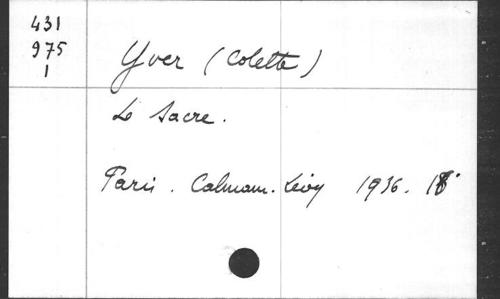 431
975
1
Yver (Colette)
Le Sacre.
Paris. Calmann-Lévy 1936. 18°